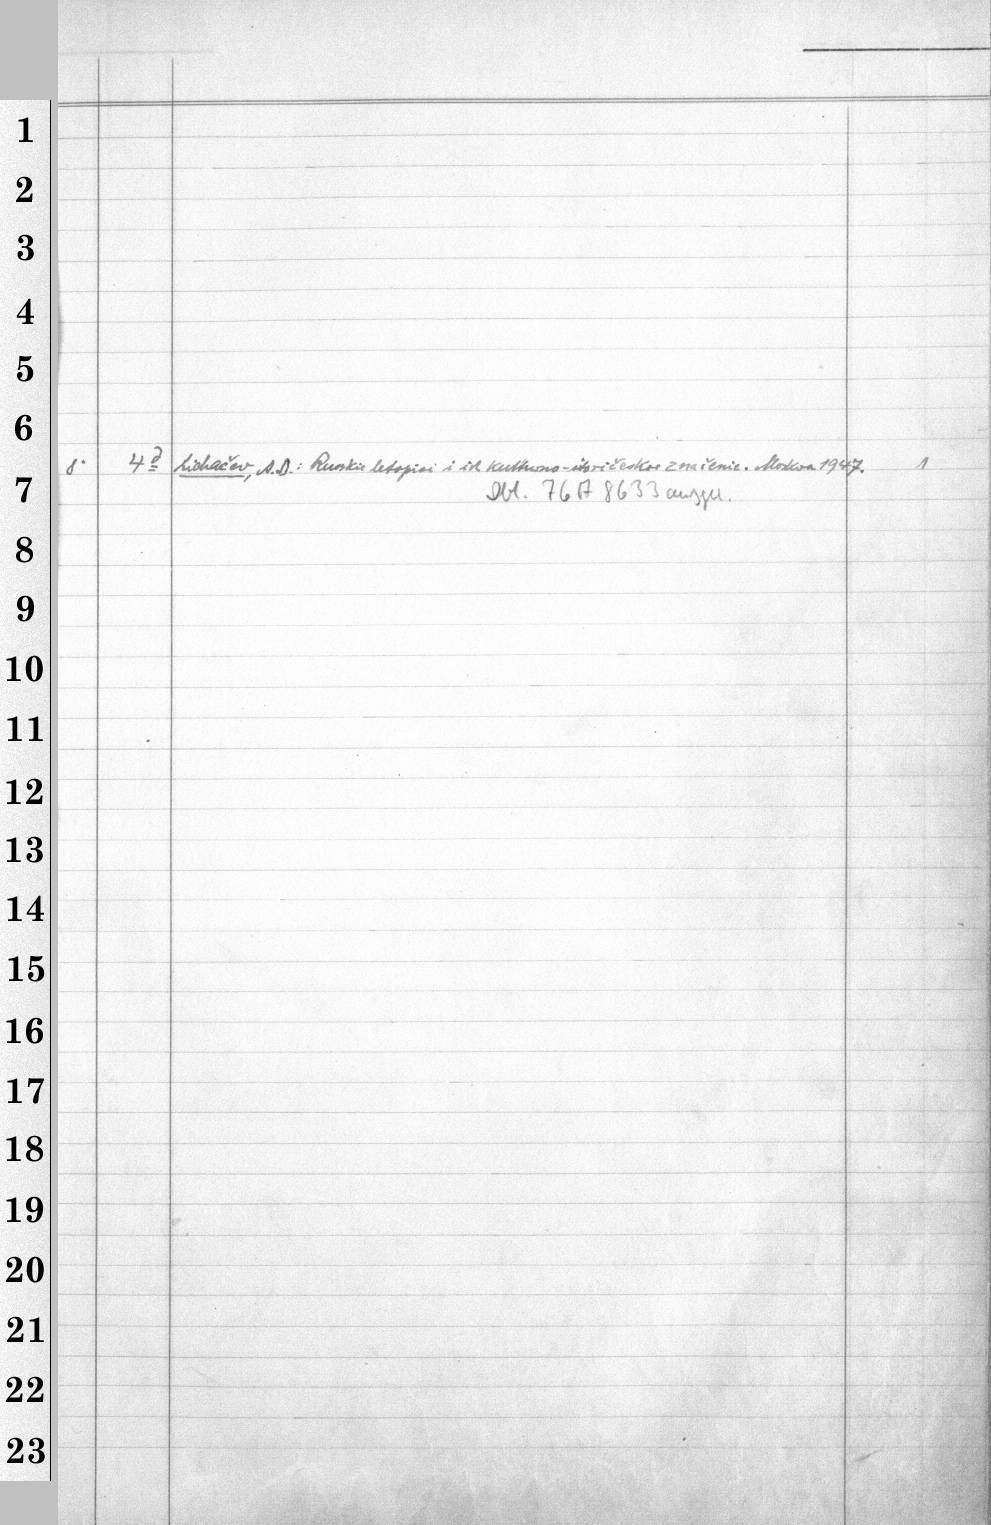 1
2
3
4
5
6
8° 4 a Lichačev, A.D.: Russkie letopisi i ich kulturno-istoričeskoe značenie. Moskva 1947. 1
7
Dbl. 76 A 8633
8
9
10
11
12
13
14
15
16
17
18
19
20
21
22
23